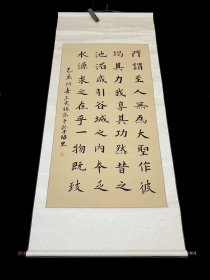 所謂至人無為大聖作彼
竭其力我享其功然昔之
池沼咸引谷城之内本乏
水源求之在乎一物既致